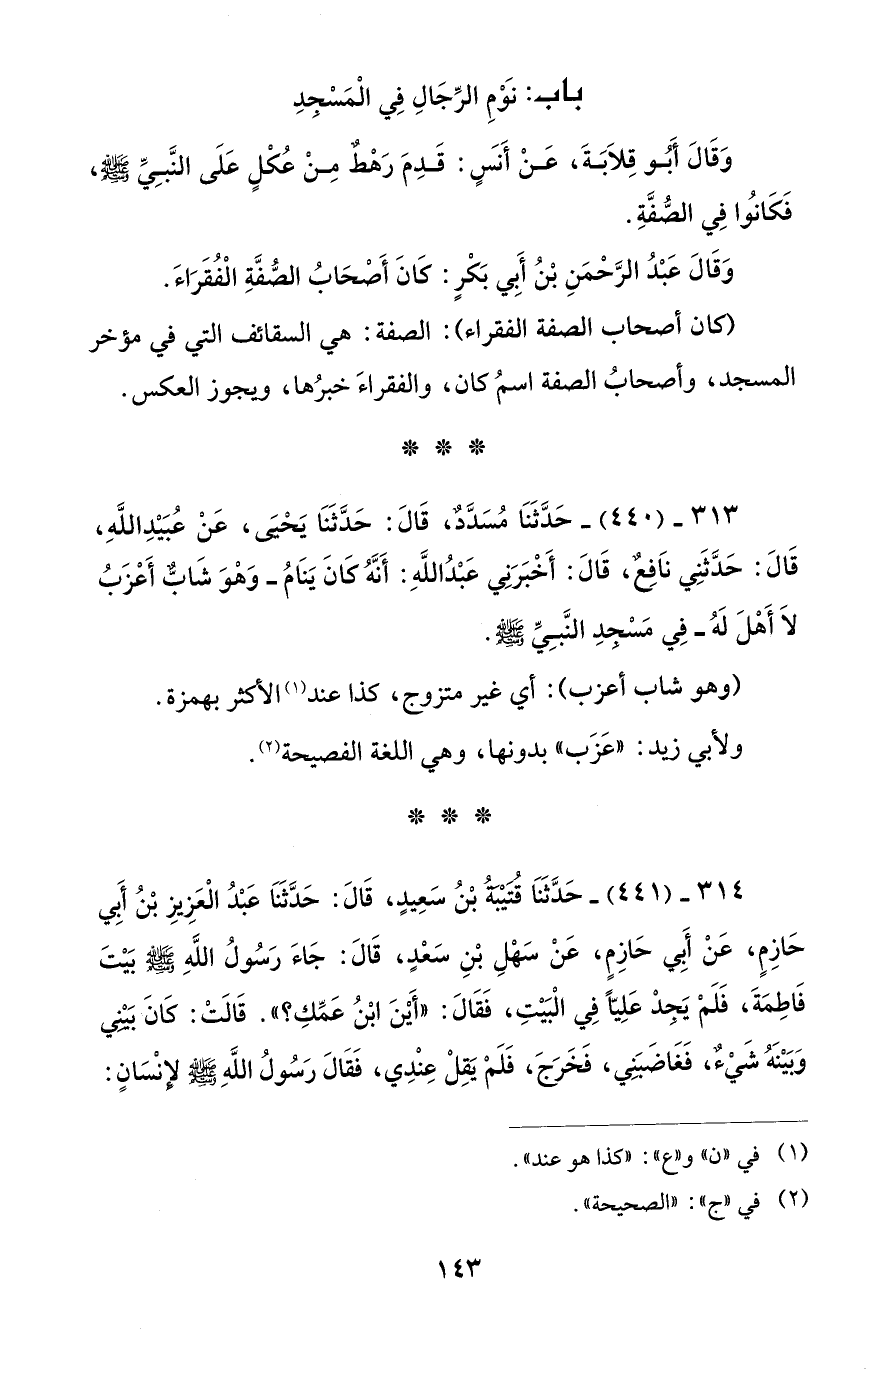 باب: نَوْمِ الرِّجَالِ فِي الْمَسْجِدِ
وَقَالَ أَبُو قِلاَبَةَ، عَنْ أَنَسٍ: قَدِمَ رَهْطٌ مِنْ عُكْلٍ عَلَى النَّبِيِّ ﷺ،
فَكَانُوا فِي الصُّفَّةِ.
وَقَالَ عَبْدُ الرَّحْمَنِ بْنُ أَبِي بَكْرٍ: كَانَ أَصْحَابُ الصُّفَّةِ الْفُقَرَاءَ.
(كان أصحاب الصفة الفقراء): الصفة: هي السقائف التي في مؤخر
المسجد، وأصحابُ الصفة اسمُ كان، والفقراءَ خبرُها، ويجوز العكس.
* * *
٣١٣ - (٤٤٠) - حَدَّثَنَا مُسَدَّدٌ، قَالَ: حَدَّثَنَا يَحْيَى، عَنْ عُبَيْدِاللَّهِ،
قَالَ: حَدَّثَنِي نَافِعٌ، قَالَ: أَخْبَرَنِي عَبْدُاللَّهِ: أَنَّهُ كَانَ يَنَامُ - وَهْوَ شَابٌّ أَعْزَبُ
لاَ أَهْلَ لَهُ - فِي مَسْجِدِ النَّبِيِّ ﷺ.
(وهو شاب أعزب): أي غير متزوج، كذا عند(١) الأكثر بهمزة.
ولأبي زيد: «عَزَب» بدونها، وهي اللغة الفصيحة(٢).
* * *
٣١٤ - (٤٤١) - حَدَّثَنَا قُتَيْبَةُ بْنُ سَعِيدٍ، قَالَ: حَدَّثَنَا عَبْدُ الْعَزِيزِ بْنُ أَبِي
حَازِمٍ، عَنْ أَبِي حَازِمٍ، عَنْ سَهْلِ بْنِ سَعْدٍ، قَالَ: جَاءَ رَسُولُ اللَّهِ ﷺ بَيْتَ
فَاطِمَةَ، فَلَمْ يَجِدْ عَلِيّاً فِي الْبَيْتِ، فَقَالَ: «أَيْنَ ابْنُ عَمِّكِ؟». قَالَتْ: كَانَ بَيْنِي
وَبَيْنَهُ شَيْءٌ، فَغَاضَبَنِي، فَخَرَجَ، فَلَمْ يَقِلْ عِنْدِي، فَقَالَ رَسُولُ اللَّهِ ﷺ لِإِنْسَانٍ:
(١) في «ن» و«ع»: «كذا هو عند».
(٢) في «ج»: «الصحيحة».
١٤٣